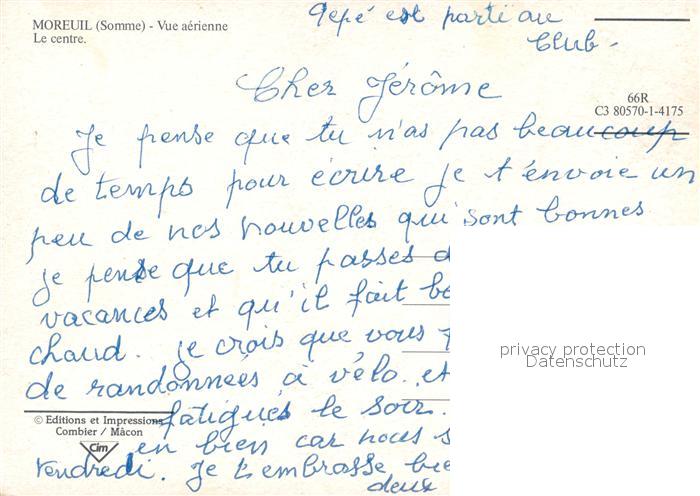 MOREUIL (Somme) - Vue aérienne
Le centre.
Pépé est parti au
Club -
66R
C3 80570-1-4175
Cher Jérôme
Je pense que tu n'as pas beaucoup
de temps pour écrire je t'envoie un
peu de nos nouvelles qui sont bonnes
je pense que tu passes d
vacances et qu'il fait be
chaud. je crois que vous f
de randonnées à vélo. et
fatigués le soir.
en bien car nous s
vendredi. Je t'embrasse bie
deux
privacy protection
Datenschutz
© Editions et Impressions
Combier / Mâcon
Cim